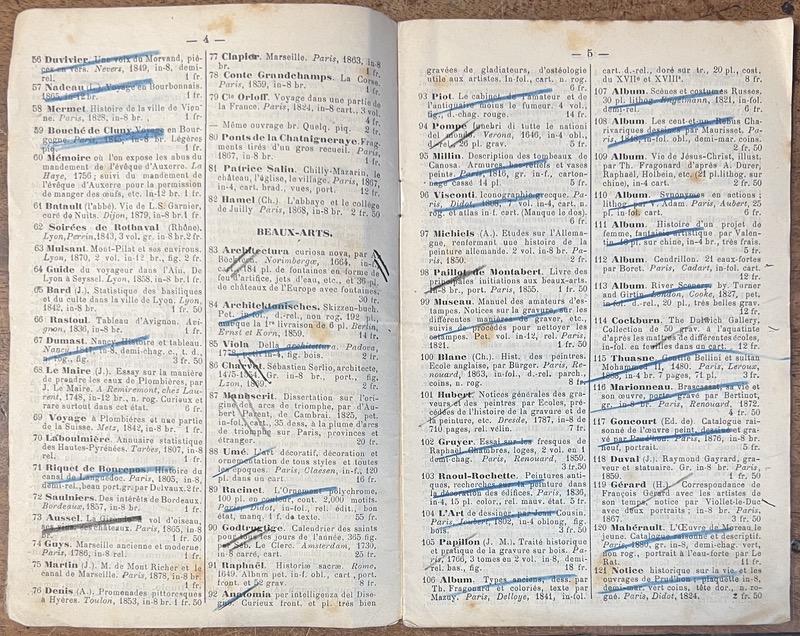 — 4 —
56 Duvivier. Une voix du Morvand, piè-
ces en vers. Nevers, 1849, in-8, demi-
rel. 1 fr.
57 Nadeau (L.) Voyage en Bourbonnais.
1865, in-12 br. 1 fr.
58 Mermet. Histoire de la ville de Vien-
ne. Paris, 1828, in-8 br. 1 fr.
59 Bouché de Cluny. Voyage en Bour-
gogne. Paris, 1845, in-8 br. Légères
piq. 1 fr.
60 Mémoire où l'on expose les abus du
mandement de l'évêque d'Auxerre. La
Haye, 1756; suivi du mandement de
l'évêque d'Auxerre pour la permission
de manger des œufs, etc. In-12 br. 1 fr.
61 Batault (l'abbé). Vie de L.S. Garnier,
curé de Nuits. Dijon, 1879, in-8 br. 1 fr.
62 Soirées de Rothaval (Rhône).
Lyon, Perrin, 1843, 3 vol. gr. in-8 br. 2 fr.
63 Mulsant. Mont-Pilat et ses environs.
Lyon, 1870, 2 vol. in-12 br., fig. 2 fr.
64 Guide du voyageur dans l'Ain. De
Lyon à Seyssel. Lyon, 1858, in-8 br. 1 fr.
65 Bard (J.). Statistique des basiliques
et du culte dans la ville de Lyon. Lyon,
1842, in-8 br. 1 fr. 50
66 Rastoul. Tableau d'Avignon. Avi-
gnon, 1836, in-8 br. 1 fr.
67 Dumast. Nancy, histoire et tableau.
Nancy, in-8, demi-chag. c., t. d.,
rog., fig. 3 fr. 50
68 Le Maire (J.). Essay sur la manière
de prendre les eaux de Plombières, par
J. Le Maire. A Remiremont, chez Lau-
rent, 1748, in-12 br., n. rog. Curieux et
rare surtout dans cet état. 6 fr.
69 Voyage à Plombières et une partie
de la Suisse. Metz, 1842, in-8 br. 1 fr.
70 Laboulinière. Annuaire statistique
des Hautes-Pyrénées. Tarbes, 1807, in-8,
rel. 1 fr.
71 Riquet de Bonrepos. Histoire du
canal de Languedoc. Paris, 1805, in-8,
demi-rel., beau port. gr. par Duivaux. 2 fr.
72 Saulniers. Des intérêts de Bordeaux.
Bordeaux, 1857, in-8 br. 1 fr.
73 Aussel. La Gironde à vol d'oiseau,
ses châteaux. Paris, 1865, in-8
br. 1 fr. 50
74 Guys. Marseille ancienne et moderne.
Paris, 1786, in-8 rel. 1 fr.
75 Martin (J.). M. de Mont Richer et le
canal de Marseille. Paris, 1878, in-8 br.
1 fr.
76 Denis (A.). Promenades pittoresques
à Hyères. Toulon, 1853, in-8 br. 1 fr. 50
77 Clapier. Marseille. Paris, 1863, in-8
br. 1 fr.
78 Conte Grandchamps. La Corse.
Paris, 1859, in-8 br. 1 fr.
79 Cte Orloff. Voyage dans une partie de
la France. Paris, 1824, in-8 cart., 3 vol.
4 fr.
— Même ouvrage br. Quelq. piq. 2 fr.
80 Ponts de la Chataigneraye. Frag-
ments tirés d'un gros recueil. Paris,
1867, in-8 br. 1 fr.
81 Patrice Salin. Chilly-Mazarin, le
château, l'église, le village. Paris, 1867,
in-4, cart. brad., vues, port. 12 fr.
82 Hamel (Ch.). L'abbaye et le collège
de Juilly. Paris, 1868, in-8 br. 2 fr. 50
BEAUX-ARTS.
83 Architectura curiosa nova, par
Norimbergæ, 1664, in-
184 pl. de fontaines en forme de
feu d'artifice, jets d'eau, etc., et 36 pl.
de châteaux de l'Europe avec fontaines.
30 fr.
84 Architektonisches. Skizzen-buch.
Pet. d.-rel., non rel., 192 pl.,
que la 1re livraison de 6 pl. Berlin,
Ernst et Korn, 1859. 14 fr.
85 Viola Della architettura. Padoua,
in-4, fig. bois. 2 fr.
86 Charvet. Sébastien Serlio, architecte,
1475-1554. Gr. in-8 br., port., fig.
Lyon, 1869. 2 fr.
87 Manuscrit. Dissertation sur l'ori-
gine des arcs de triomphe, par d'Au-
bert Parent, de Cambrai, 1825, in-fol.
cart., 35 dess. à la plume d'arcs
de triomphe sur Paris, provinces et
étranger. 20 fr.
88 Umé. L'art décoratif, décoration et
ornementation de tous styles et toutes
époques. Paris, Claesen, in-fol., 120
pl. dans un cart. 16 fr.
89 Racinet. L'Ornement polychrome,
100 pl. en couleur, cont. 2,000 motifs.
Paris, Didot, in-fol., rel. édit., bon
état, manq. 1 f. de texte. 55 fr.
90 Godtruttige. Calendrier des saints
pour tous les jours de l'année, 365 fig.
Seb. Le Clerc. Amsterdam, 1730,
in-4 carré, cart. 25 fr.
91 Raphaël. Historiæ sacræ. Rome,
1649. Album pet. in-f. obl., cart., port.
front. et 52 grav. 8 fr.
92 Anatomia per intelligenza del Dise-
gno. Curieux front. et pl. très bien
— 5 —
gravées de gladiateurs, d'ostéologie
utile aux artistes. In-fol., cart. n. rog.
6 fr.
93 Piot. Le cabinet de l'amateur et de
l'antiquaire moins le fumeur. 4 vol.,
fig. d.-chag. rouge. 14 fr.
94 Pompe funebri di tutte le nationi
del mondo. Verona, 1646, in-4 obl.,
d.-rel., 26 pl. grav. 5 fr.
95 Millin. Description des tombeaux de
Canosa. Armures, bas-reliefs et vases
peints. Paris, 1816, gr. in-f., carton-
nage cassé 14 pl. 5 fr.
96 Visconti. Iconographie grecque. Pa-
ris, Didot, 1808, 3 vol. in-4, cart., n.
rog. et atlas in f. cart. (Manque le dos)
6 fr.
97 Michiels (A.). Etudes sur l'Allema-
gne, renfermant une histoire de la
peinture allemande. 2 vol. in-8 br. Pa-
ris, 1850. 2 fr.
98 Paillot de Montabert. Livre des
principales initiations aux beaux-arts.
in-8 br., port. Paris, 1855. 1 fr. 50
99 Museau. Manuel des amateurs d'es-
tampes. Notices sur la gravure et les
différentes manières de graver, etc.,
suivis de procédés pour nettoyer les
estampes. Pet. in-12, rel. Paris,
1821. 1 fr. 50
100 Blanc (Ch.). Hist. des peintres.
Ecole anglaise, par Bürger. Paris, Re-
nouard, 1863, in-fol., d.-rel. parch.,
coins, n. rog. 8 fr.
101 Hubert. Notices générales des gra-
veurs et des peintres par Ecoles, pro-
cédées de l'histoire de la gravure et de
la peinture, etc. Dresde, 1787, in-8 de
710 pages, rel. vélin. 7 fr.
102 Gruyer. Essai sur les fresques de
Raphaël. Chambres, loges, 2 vol. en 1
demi-chag. Paris, Renouard, 1859.
3 fr. 50
103 Raoul-Rochette. Peintures anti-
ques, recherches sur l'emploi dans
la décoration des édifices. Paris, 1836,
in-4, 15 pl. color., rel. mauv. état. 5 fr.
104 L'Art de dessiner, par Jean Cousin.
Paris, Joubert, 1802, in-4 oblong, fig.
bois. 3 fr. 50
105 Papillon (J. M.). Traité historique
et pratique de la gravure sur bois. Pa-
ris, 1766, 3 tomes en 2 vol. in-8, demi-
rel. bas., fig. 18 fr.
106 Album. Types anciens, dess. par
Th. Fragonard et coloriés, texte par
Mazuy. Paris, Delloye, 1841, in-fol.
cart. d.-rel., doré sur tr., 20 pl., cost.
du XVIIe et XVIIIe. 8 fr.
107 Album. Scènes et costumes Russes,
30 pl. lithog. Engelmann, 1821, in-fol.
demi-rel. 6 fr.
108 Album. Les cent-et-un Rébus Cha-
rivariques dessinés par Maurisset. Pa-
ris, 1846, in-fol. obl., demi-mar. coins.
2 fr. 50
109 Album. Vie de Jésus-Christ, illust.
par Th. Fragonard d'après A. Durer,
Raphaël, Holbein, etc. (21 pl. lithog. sur
chine), in-4 cart. 2 fr. 50
110 Album. Synonymes en actions;
lithog. par V. Adam. Paris, Aubert, 25
pl. in-fol. cart. 6 fr.
111 Album. Histoire d'un projet de
femme, fantaisie artistique par Valen-
tin, 16 pl., sur chine, in-4 br., très frais.
5 fr.
112 Album. Cendrillon. 21 eaux-fortes
par Boret. Paris, Cadart, in-fol. cart.
12 fr.
113 Album. River Scenery by. Turner
and Girtin. London, Cooke, 1827, pet.
d.-rel., 20 pl., très belles grav.
12 fr.
114 Cockburn. The Dulwich Gallery,
Collection de 50 grav. à l'aquatinte
d'après les maîtres de différentes écoles,
in-fol. en feuilles dans un cart. 12 fr.
115 Thuasne. Gentile Bellini et sultan
Mohammed II, 1480. Paris, Leroux,
in-4 br. 7 pages, 71 pl. 3 fr.
116 Marionneau. Brascassat, sa vie et
son œuvre, port. gravé par Bertinot,
gr. in-8 br. Paris, Renouard, 1872.
4 fr. 50
117 Goncourt (Ed. de). Catalogue rai-
sonné de l'œuvre peint, dessiné et gra-
vé par Prud'hon. Paris, 1876, in-8 br.,
neuf, portrait. 5 fr.
118 Duval (J.). Raymond Gayrard, gra-
veur et statuaire. Gr. in-8 br. Paris,
1859. 2 fr. 50
119 Gérard (H.). Correspondance de
François Gérard avec les artistes de
son temps, notice par Viollet-le-Duc
avec deux portraits; in-8 br. Paris,
1867. 3 fr. 50
120 Mahérault. L'Œuvre de Moreau le
jeune. Catalogue raisonné et descriptif.
Paris, 1880, gr. in-8, demi-chag. vert,
non rog., portrait à l'eau-forte par Le
Rat. 11 fr.
121 Notice historique sur la vie et les
ouvrages de Prud'hon, plaquette in-8,
demi-mar. vert coins, tête dor., n. ro-
gné. Paris, Didot, 1824. 2 fr. 50